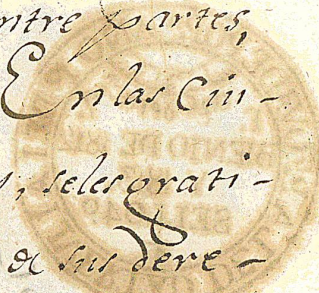 ntre partes,
En las Ciu-
s, seles grati-
de sus dere-